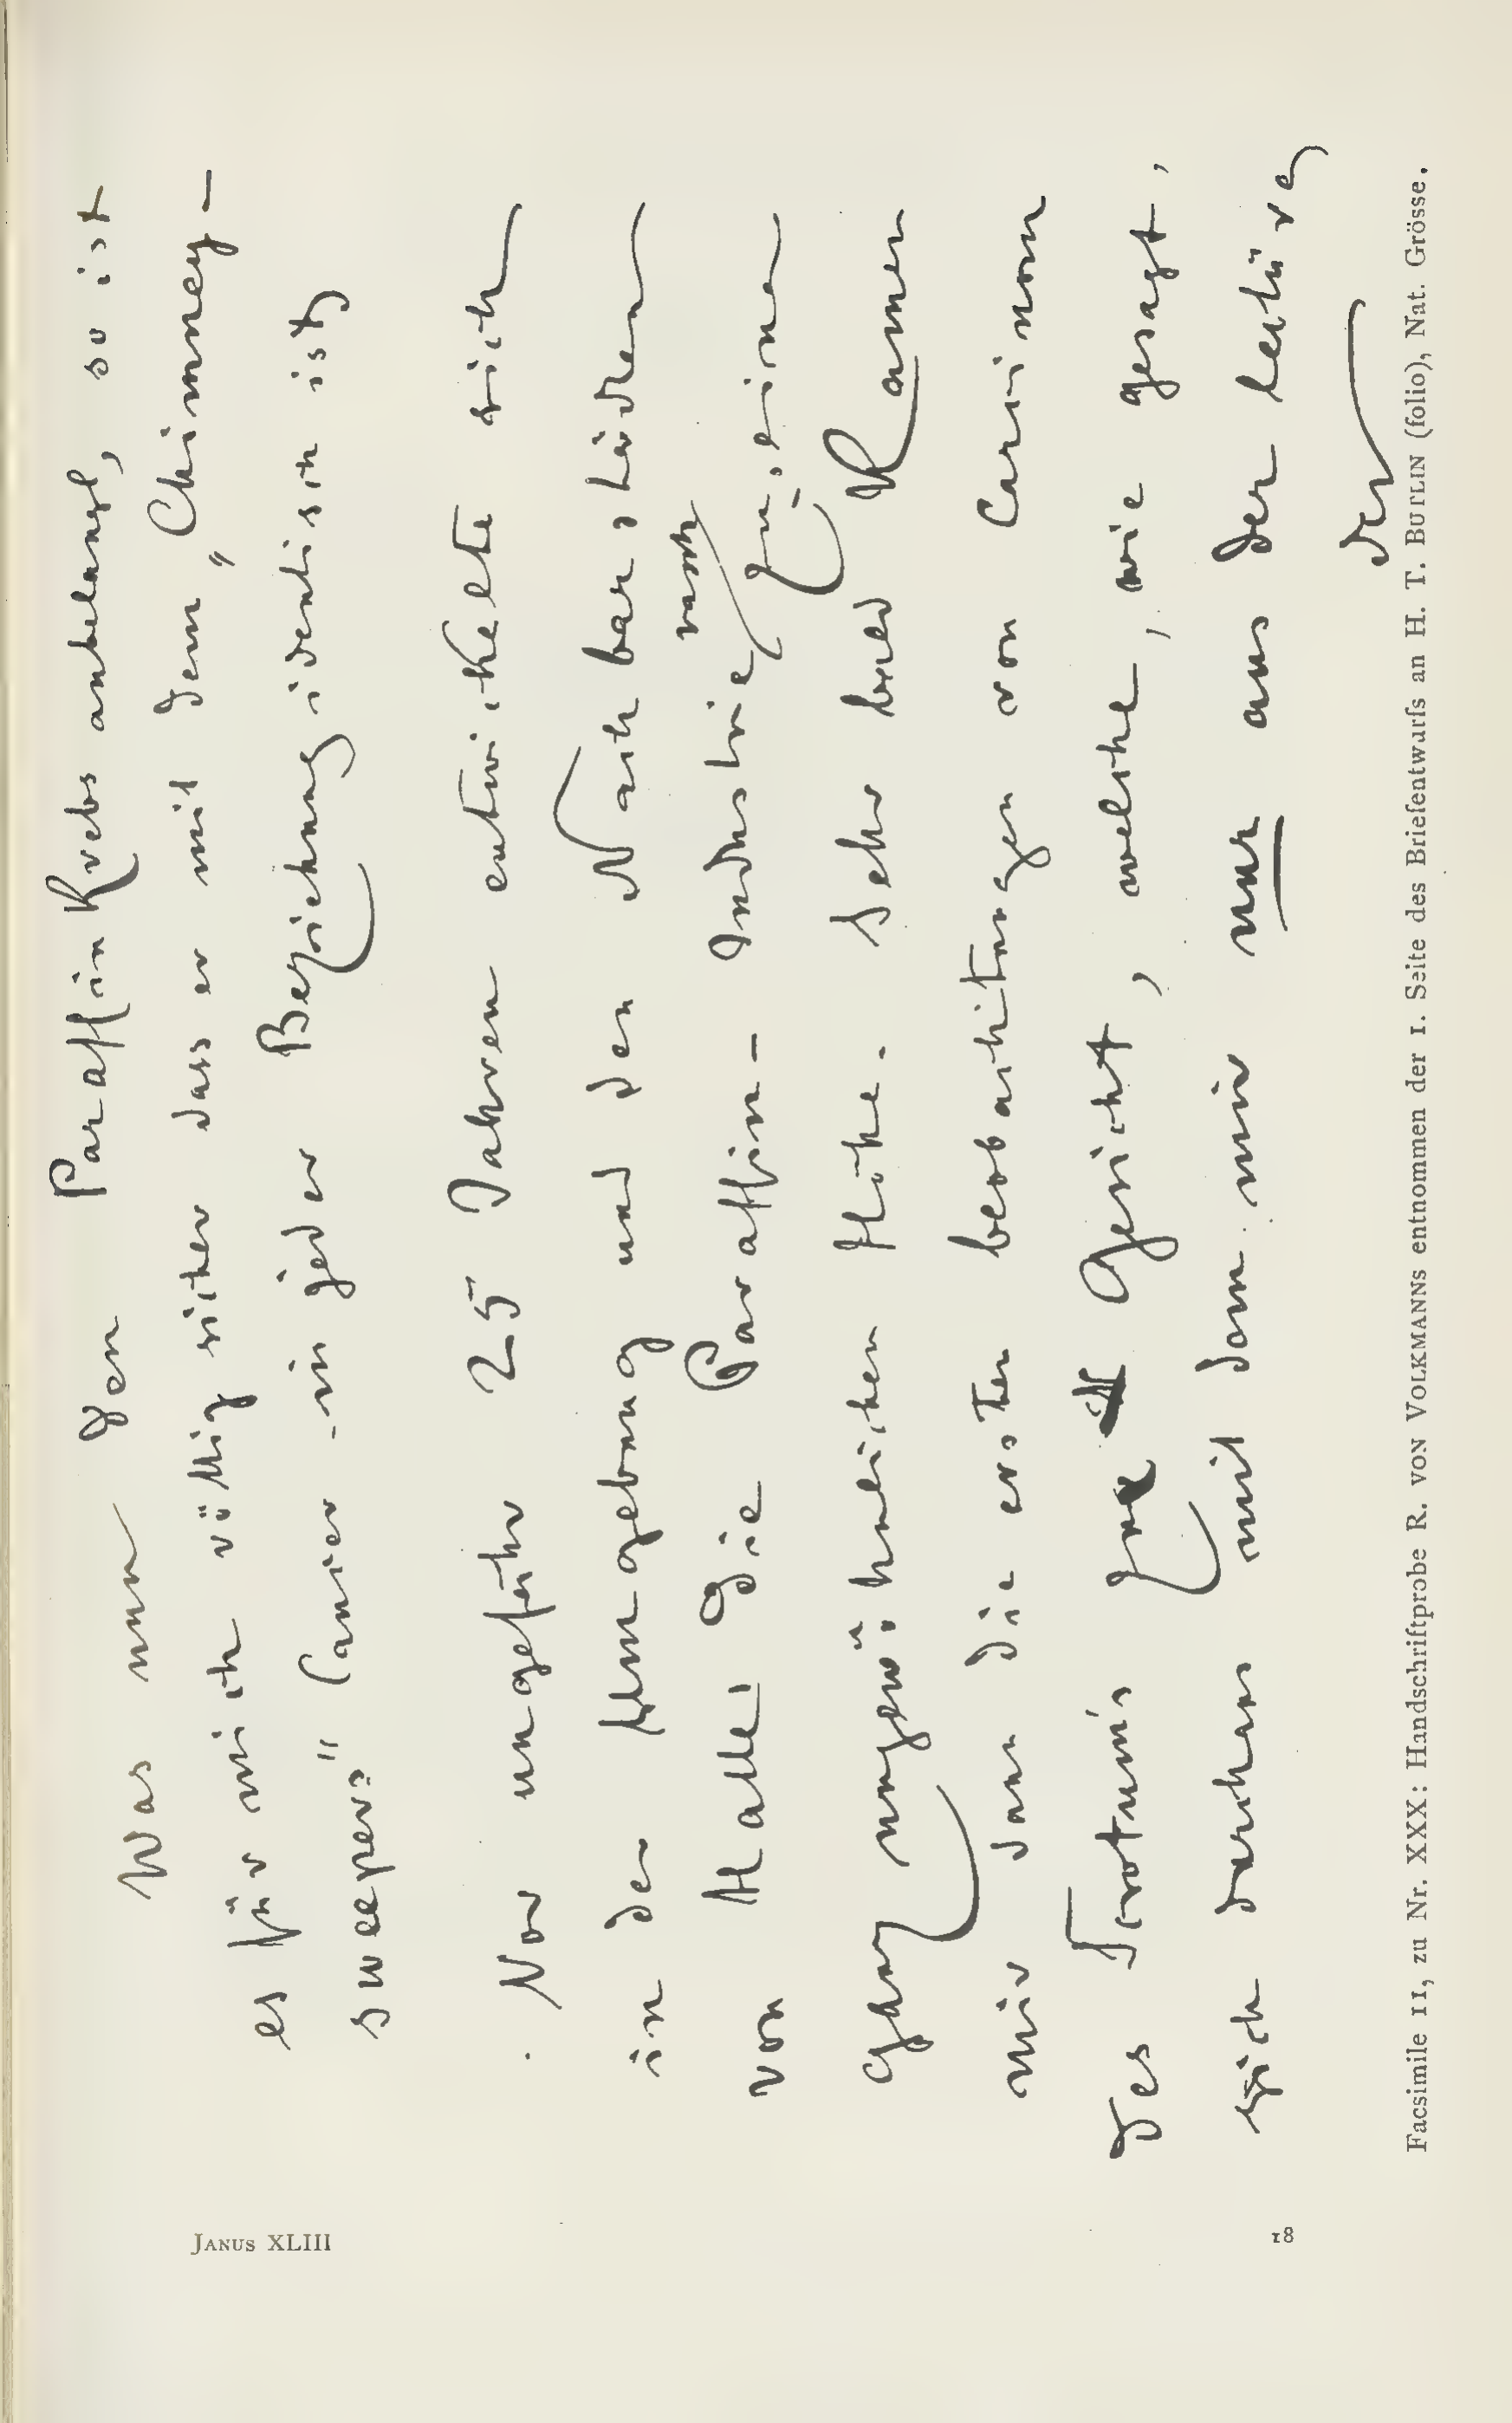 Was nun den Paraffin Krebs anbelangt, so ist
es für mich völlig sicher dass er mit dem „Chimney-
sweepers" Cancer in jeder Beziehung identisch ist.
Vor ungefähr 25 Jahren entwickelte sich
in der Umgebung und den Nachbarstädten
von Halle die Paraffin-Industrie rasch zu einer
ganz ungewöhnlichen Höhe. Sehr bald kamen
mir dann die ersten Beobachtungen von Carcinom
des Scrotums zu Gesicht, welche, wie gesagt,
sich durchaus mit dem mir nur aus der Lectüre
der
Facsimile 11, zu Nr. XXX: Handschriftprobe R. VON VOLKMANNS entnommen der 1. Seite des Briefentwurfs an H. T. BUTLIN (folio), Nat. Grösse.
JANUS XLIII
18